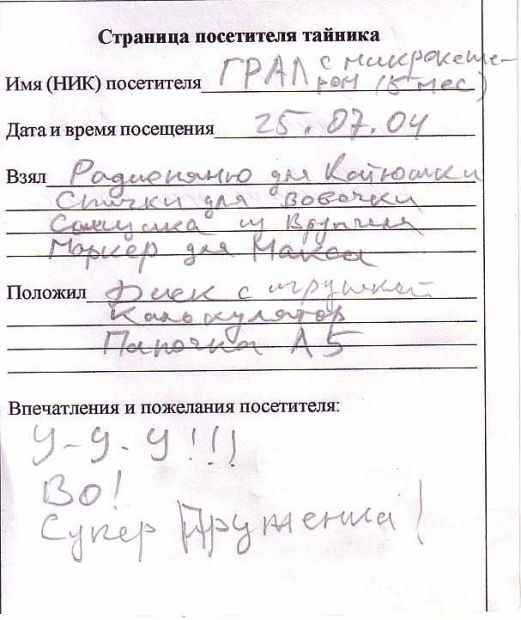 Страница посетителя тайника
Имя (НИК) посетителя ГРАЛ с микрокеше-
ром (5 мес)
Дата и время посещения 25.07.04
Взял Радионяню для Катюшки
Спички для Вовочки
из
Маркер для Макса
Положил Диск с игрушкой
Калькулятор
Папочка А5
Впечатления и пожелания посетителя:
У-У-У!!!
Во!
Супер !